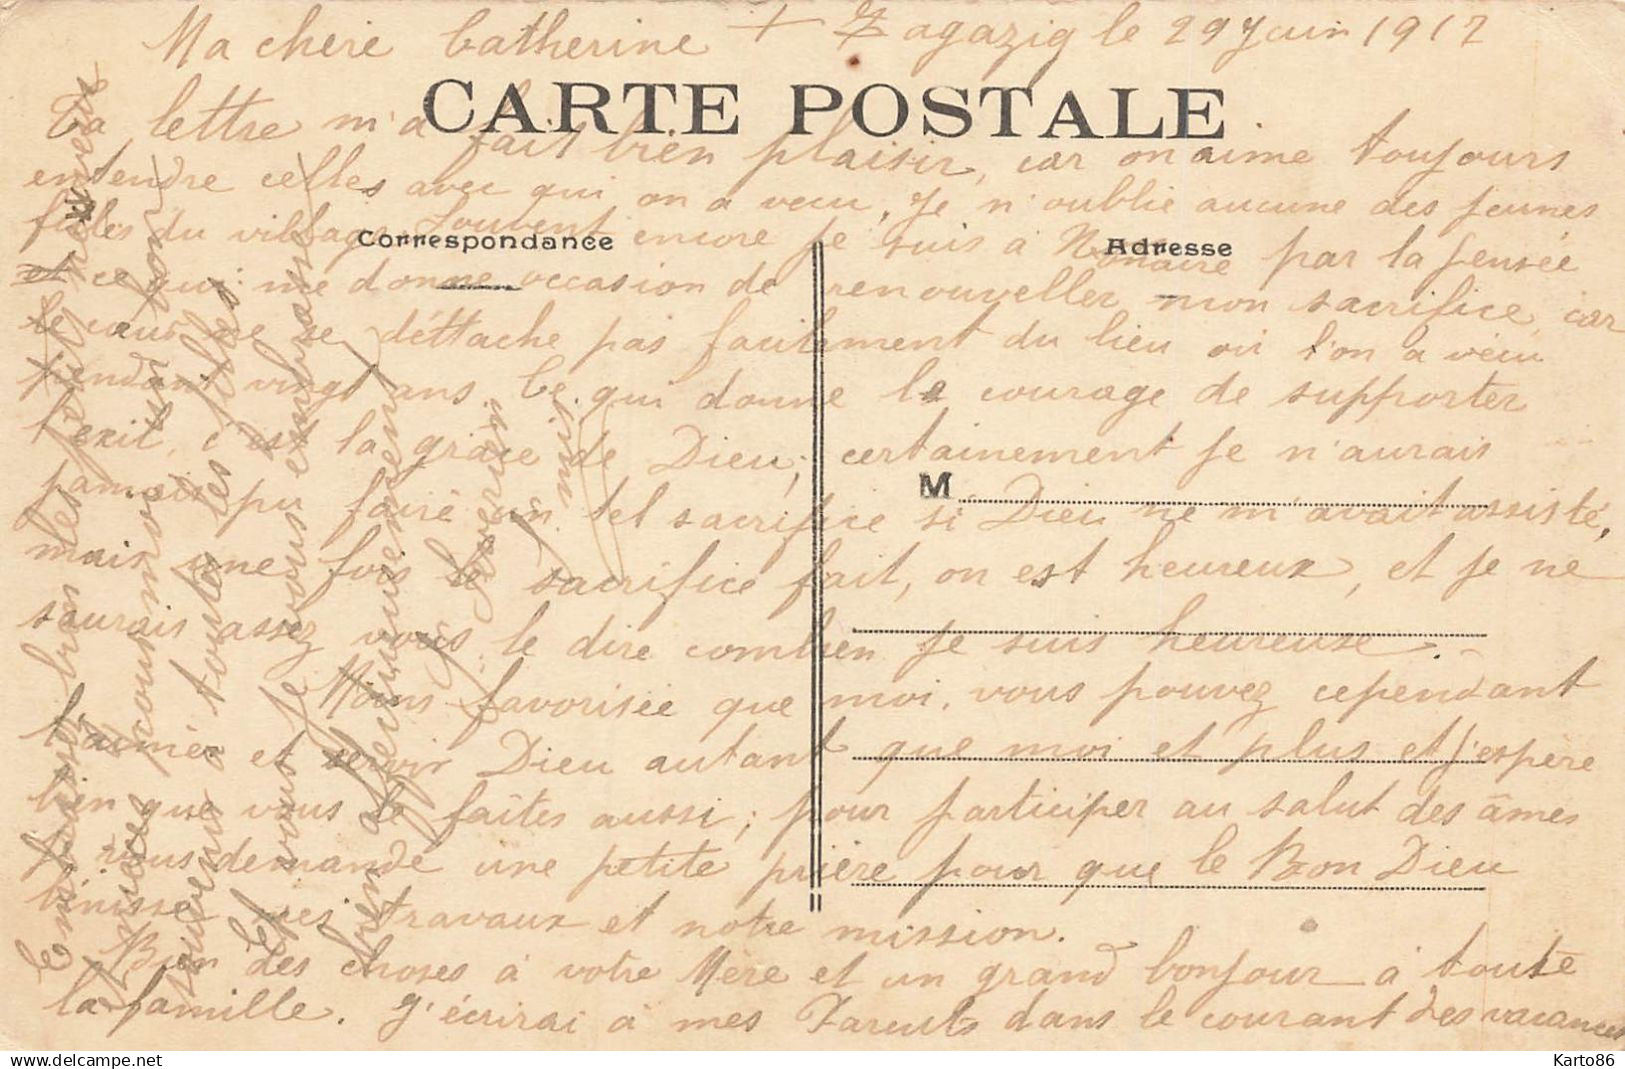 Ma chère Catherine + Zagazig le 29 Juin 1912
CARTE POSTALE
Ta lettre m'a fait bien plaisir, car on aime toujours
entendre celles avec qui on a vécu, je n'oublie aucune des jeunes
filles du village souvent encore je suis à par la pensée
Correspondance
Adresse
et ce qui me donne occasion de renouveller mon sacrifice, car
le cœur ne se déttache pas facilement du lieu où l'on a vécu
pendant vingt ans. Ce qui donne le courage de supporter
l'exil, c'est la grâce de Dieu; certainement je n'aurais
M
jamais pu faire un tel sacrifice si Dieu ne m'avait assisté,
mais une fois le sacrifice fait, on est heureux, et je ne
saurais assez vous le dire combien je suis heureuse.
Moins favorisée que moi, vous pouvez cependant
aimer et servir Dieu autant que moi et plus et j'espère
bien que vous le faîtes aussi; pour participer au salut des âmes
je vous demande une petite prière pour que le Bon Dieu
bénisse mes travaux et notre mission.
Bien des choses à votre Mère et un grand bonjour à toute
la famille. J'écrirai à mes Parents dans le courant des vacances
Embrassez bien les petits neveux
nièces pour moi un bon
souvenir à toutes les filles
Et vous je vous embrasse
bien affectueusement
Karto86